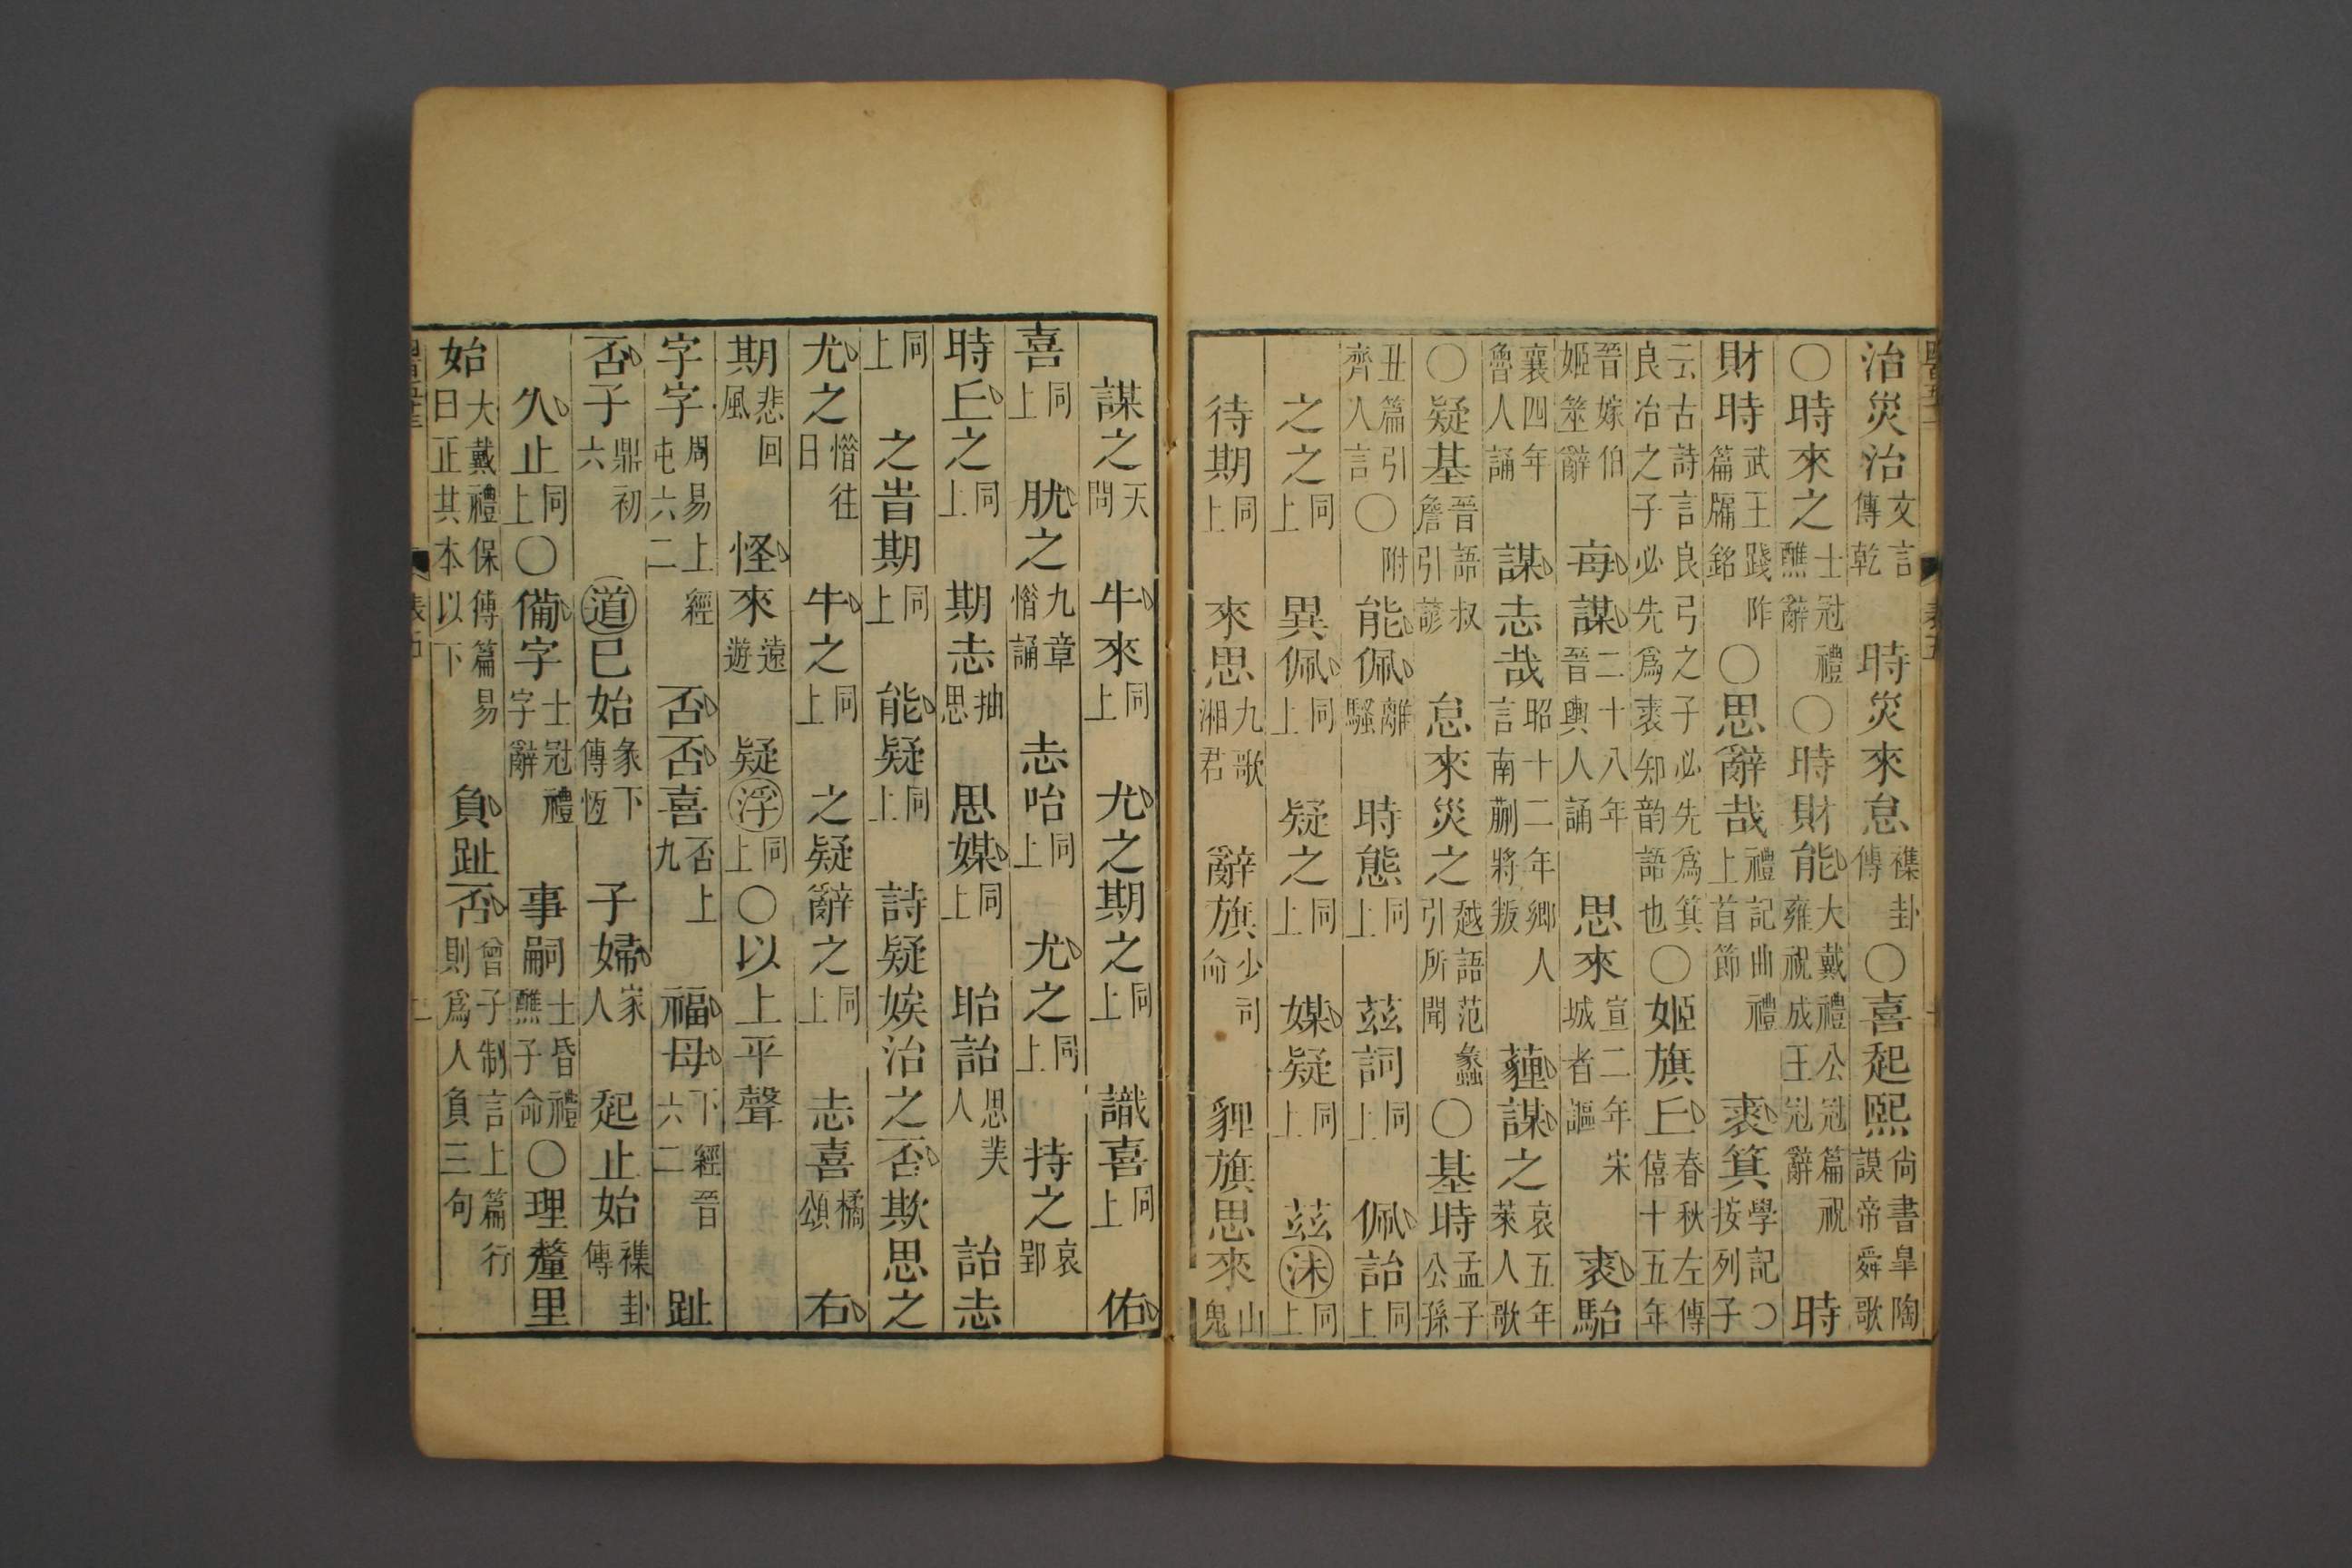 治災治文言傳乾 時災來怠襍卦傳 〇喜起熙尚書皐陶謨帝舜歌
〇時來之士冠禮醮辭 〇時財能大戴禮公冠篇祝雍祝成王冠辭 時
財時武王踐阼篇牖銘 〇思辭哉禮記曲禮上首節 裘箕學記〇按列子
云古詩言良弓之子必先爲箕良冶之子必先爲裘知韵語也 〇姬旗丘春秋左傳僖十五年
晉嫁伯姬筮辭 每謀二十八年晉輿人誦 思來宣二年宋城者謳 裘駘
襄四年魯人誦 謀志哉昭十二年南蒯將叛鄉人言 薶謀之哀五年萊人歌
〇疑基晉語叔詹引諺 怠來災之越語范蠡引所聞 〇基時孟子公孫
丑篇引齊人言 〇附 能佩離騷 時態同上 茲詞同上 佩詒同上
之之同上 異佩同上 疑之同上 媒疑同上 茲沬同上
待期同上 來思九歌湘君 辭旗少司命 貍旗思來山鬼
謀之天問 牛來同上 尤之期之同上 識喜同上 佑
喜同上 肬之九章惜誦 志咍同上 尤之同上 持之哀郢
時丘之同上 期志抽思 思媒同上 眙詒思美人 詒志
同上 之旹期同上 能疑同上 詩疑娭治之否欺思之
尤之惜往日 牛之同上 之疑辭之同上 志喜橘頌 右
期悲回風 怪來遠遊 疑浮同上 〇以上平聲
字字周易上經屯六二 否否喜否上九 福母下經晉六二 趾
否子鼎初六 道已始彖下傳恆 子婦家人 起止始襍卦傳
久止同上 〇備字士冠禮字辭 事嗣士昏禮醮子命 〇理釐里
始大戴禮保傅篇易曰正其本以下 負趾否曾子制言上篇行則爲人負三句